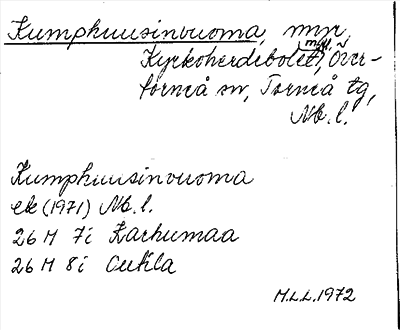 Kumphuusinvuoma, myr,
Kyrkoherdebolet m.fl., Över-
torneå sn, Torneå tg,
Nb. l.
Kumphuusinvuoma
ek (1971) Nb. l.
26 M 7i Karhumaa
26 M 8i Cukla
M.L.L. 1972